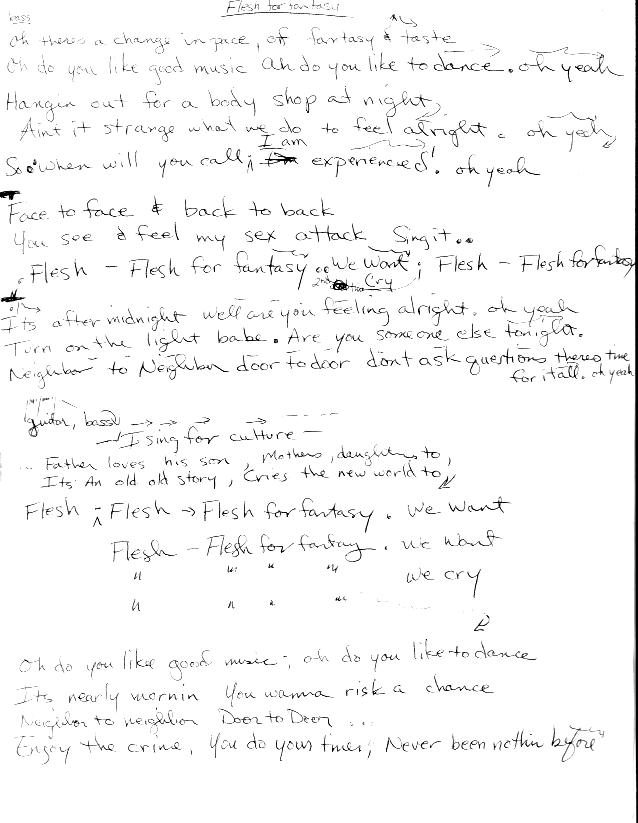 Flesh for fantasy
bass
Oh theres a change in pace, of fantasy & taste
Oh do you like good music Oh do you like to dance. oh yeah
Hangin out for a body shop at night,
Aint it strange what we do to feel alright. oh yeah,
I am
So when will you call, experienced! oh yeah
Face to face & back to back
You see & feel my sex attack Sing it..
Flesh - Flesh for fantasy .. We want; Flesh - Flesh for fantasy
2nd Cry
Its after midnight well are you feeling alright. oh yeah
Turn on the light babe. Are you someone else tonight.
Neighbor to Neighbor door to door dont ask questions theres time
for it all. oh yeah
guitar, bass
I sing for culture
... Father loves his son, Mothers, daughters to,
Its An old old story, Cries the new world to,
Flesh - Flesh → Flesh for fantasy. We Want
Flesh - Flesh for fantasy. We want
" " " " We cry
" " " "
Oh do you like good music, oh do you like to dance
Its nearly mornin You wanna risk a chance
Neighbor to neighbor Door to Door ...
Enjoy the crime, You do your times, Never been nothin before